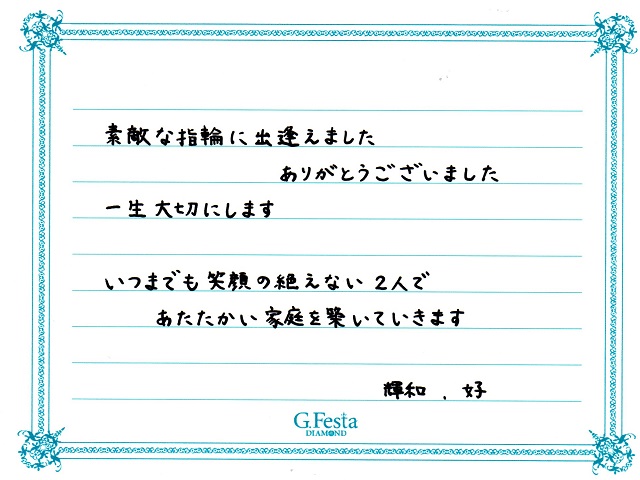 素敵な指輪に出逢えました
ありがとうございました
一生大切にします
いつまでも笑顔の絶えない2人で
あたたかい家庭を築いていきます
輝和、好
G.Festa
DIAMOND